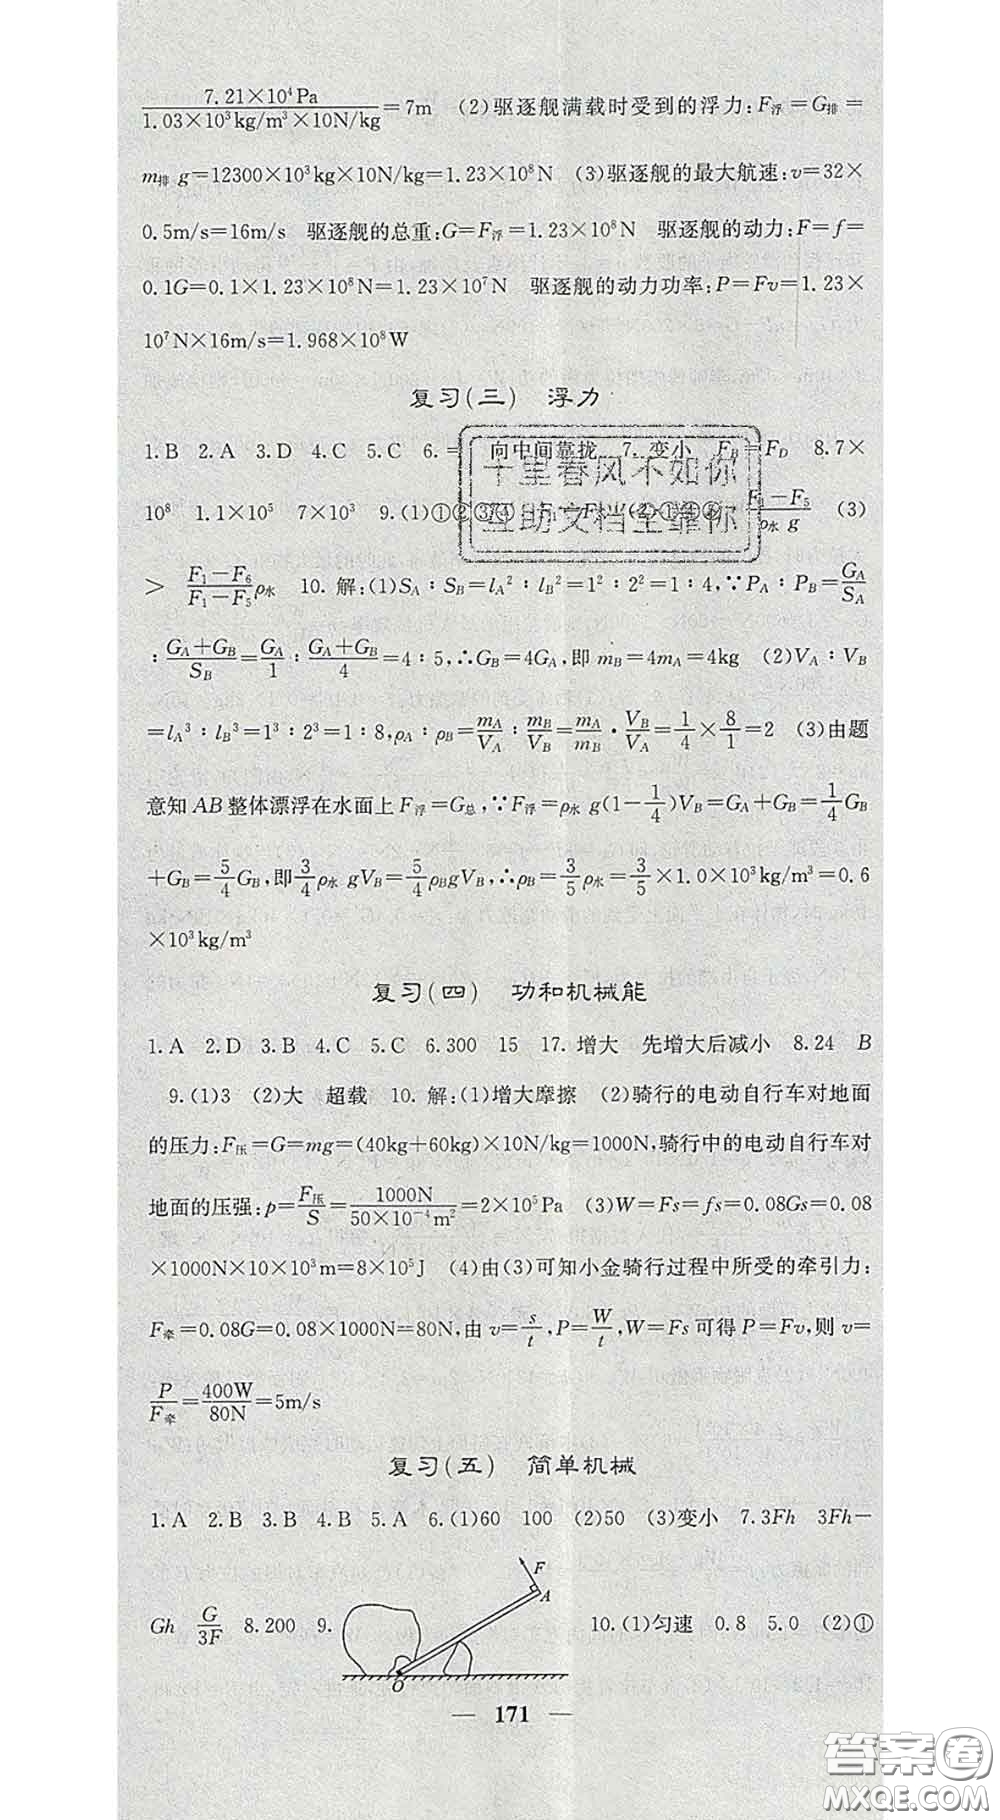 7.21×10⁴Pa/1.03×10³kg/m³×10N/kg=7m (2)驱逐舰满载时受到的浮力:F浮=G排=
m排g=12300×10³kg×10N/kg=1.23×10⁸N (3)驱逐舰的最大航速:v=32×
0.5m/s=16m/s 驱逐舰的总重:G=F浮=1.23×10⁸N 驱逐舰的动力:F=f=
0.1G=0.1×1.23×10⁸N=1.23×10⁷N 驱逐舰的动力功率:P=Fv=1.23×
10⁷N×16m/s=1.968×10⁸W
复习(三) 浮力
1.B 2.A 3.D 4.C 5.C 6.= 向中间靠拢 7.变小 F_B=F_D 8.7×
10⁸ 1.1×10⁵ 7×10³ 9.(1)①②③④ (F₁-F₅)/ρ水g (3)
> (F₁-F₆)/(F₁-F₅)ρ水 10.解:(1)S_A:S_B=l_A²:l_B²=1²:2²=1:4,∵P_A:P_B=G_A/S_A
:(G_A+G_B)/S_B=G_A/1:(G_A+G_B)/4=4:5,∴G_B=4G_A,即m_B=4m_A=4kg (2)V_A:V_B
=l_A³:l_B³=1³:2³=1:8,ρ_A:ρ_B=m_A/V_A:m_B/V_B=m_A/m_B·V_B/V_A=1/4×8/1=2 (3)由题
意知AB整体漂浮在水面上F浮=G总,∵F浮=ρ水g(1-1/4)V_B=G_A+G_B=1/4G_B
+G_B=5/4G_B,即3/4ρ水gV_B=5/4ρ_BgV_B,∴ρ_B=3/5ρ水=3/5×1.0×10³kg/m³=0.6
×10³kg/m³
复习(四) 功和机械能
1.A 2.D 3.B 4.C 5.C 6.300 15 17.增大 先增大后减小 8.24 B
9.(1)3 (2)大 超载 10.解:(1)增大摩擦 (2)骑行的电动自行车对地面
的压力:F压=G=mg=(40kg+60kg)×10N/kg=1000N,骑行中的电动自行车对
地面的压强:p=F压/S=1000N/50×10⁻⁴m²=2×10⁵Pa (3)W=Fs=fs=0.08Gs=0.08
×1000N×10×10³m=8×10⁵J (4)由(3)可知小金骑行过程中所受的牵引力:
F牵=0.08G=0.08×1000N=80N,由v=s/t,P=W/t,W=Fs可得P=Fv,则v=
P/F牵=400W/80N=5m/s
复习(五) 简单机械
1.A 2.B 3.B 4.B 5.A 6.(1)60 100 (2)50 (3)变小 7.3Fh 3Fh-
Gh G/3F 8.200 9. F A O 10.(1)匀速 0.8 5.0 (2)①
— 171 —
千里春风不如你
互助文档全靠你
答案圈
MXQE.COM